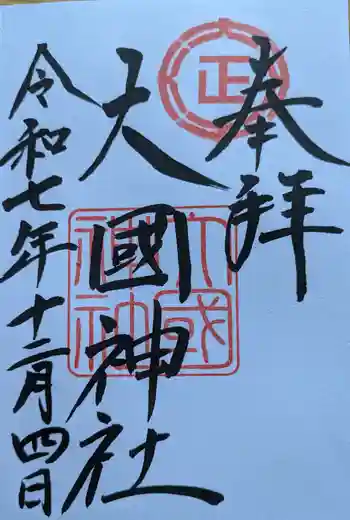 奉拝
大國神社
令和七年十二月四日
正
大國神社